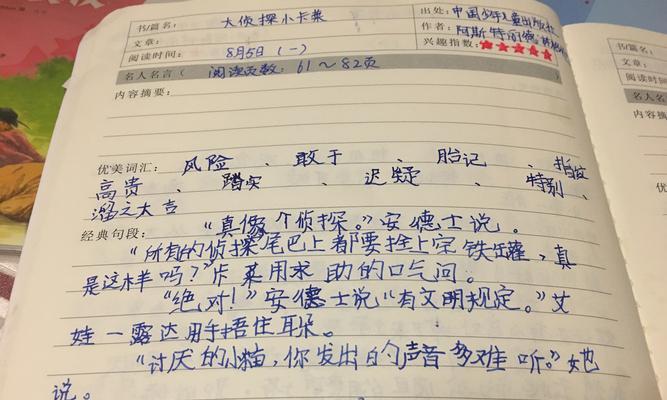 书/篇名： 大侦探小卡莱
出处：中国少年儿童出版社
文章：
作者：阿斯特
阅读时间： 8月5日（一）
兴趣指数：★★★★★
名人名言（ 阅读页数：61～82页 ）
内容摘要：
优美词汇： 风险 、 敢于 、 胎记 、
高贵 、 踏实 、 迟疑 、 特别、
溜之大吉
经典句段： “真像个侦探。”安德士说。
“所有的侦探尾巴上都要拴上空铁罐，真
是这样吗？”卡莱用求助的口气问。
“绝对！”安德士说“有文明规定。”艾
娃－露达用手捂住耳朵。
“讨厌的小猫，你发出的声音多难听。”她
说。
书/篇名：
文章：
阅读时间
名人名
内容摘要
优美词
经典